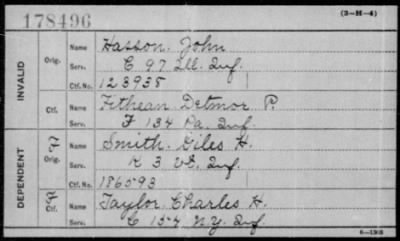 178496
(3-H-4)
INVALID
Orig.
Name Hasson. John
Serv. C 97 Ill. Inf.
Ctf. No. 123938
Ctf.
Name Fithean Detmor P.
Serv. F 134 Pa. Inf.
DEPENDENT
Orig.
Name Smith. Giles H.
Serv. K 3 Vt. Inf.
Ctf. No. 186593
Ctf.
Name Taylor, Charles H.
Serv. C 154 N.Y. Inf